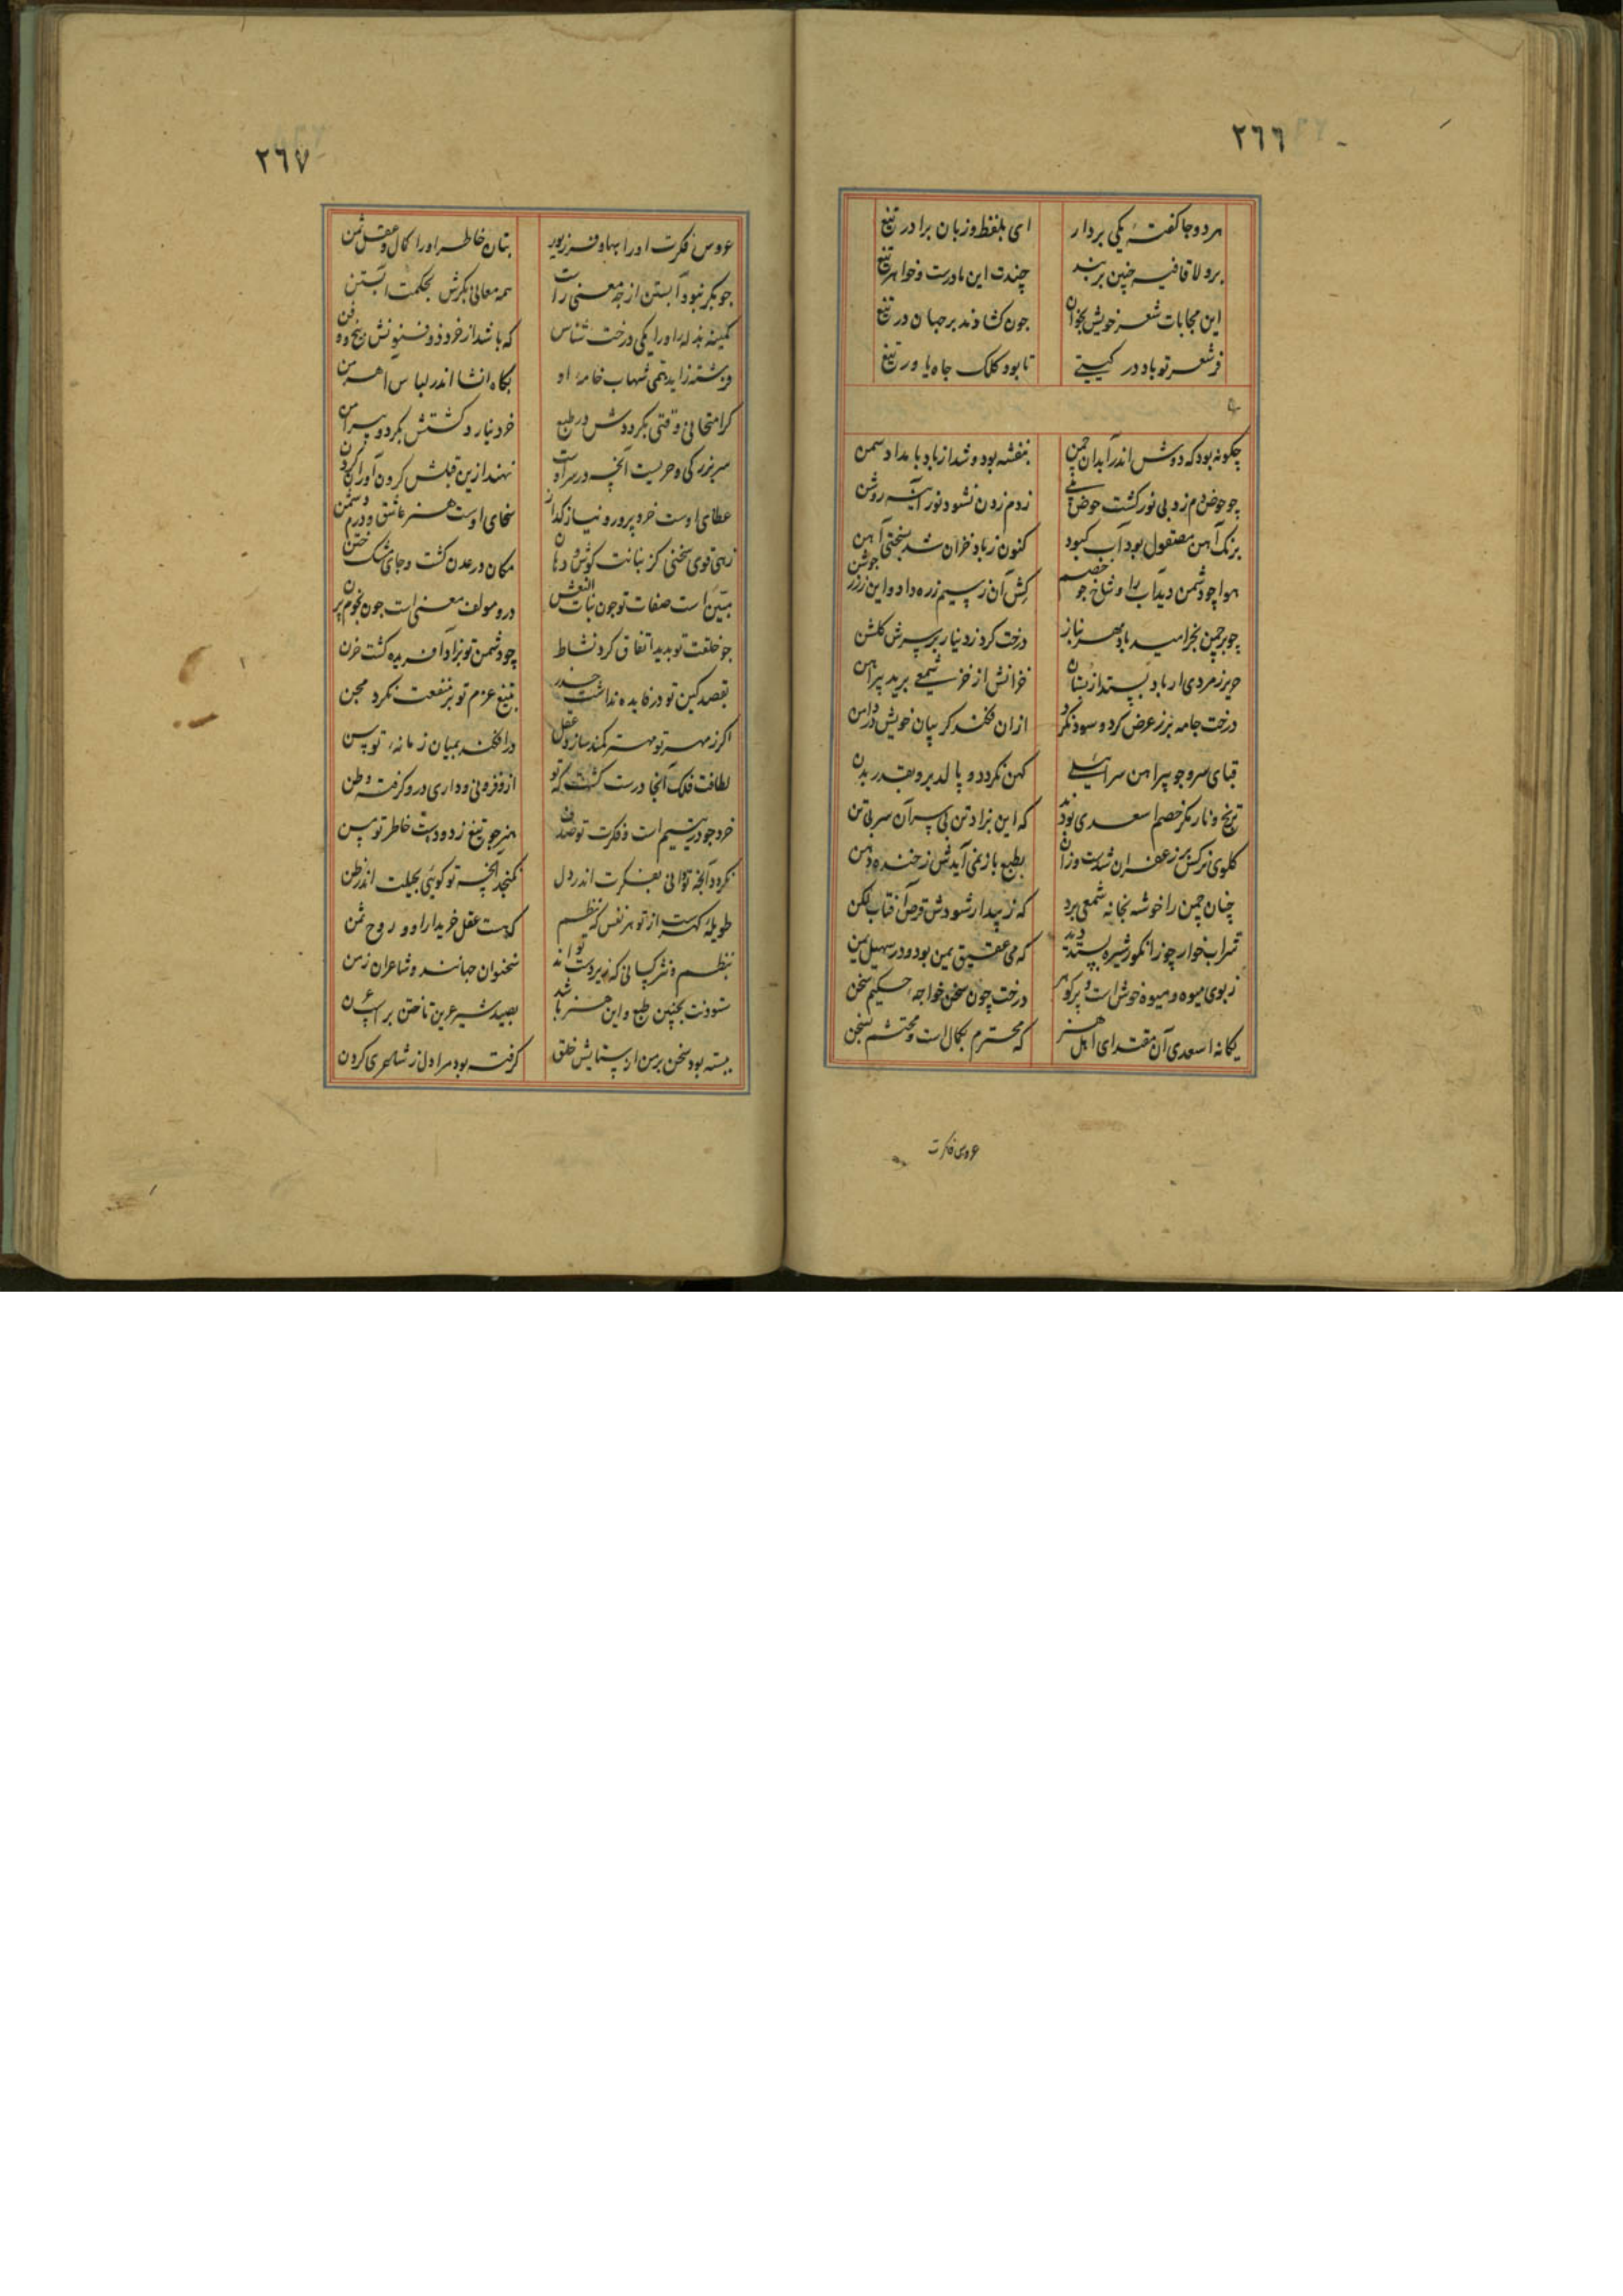 ٢٦٦
هر دو جا کفته یکی بردار ای بلفظ و زبان برادر تیغ
برو لا قافیه چنین بربند چندت این مادرست و خواهر تیغ
این مجابات شعر خویش بخوان چون کشادند بر جهان در تیغ
فر شعر تو باد در کیتے تا بود کلک جاه یاور تیغ
چکونه بود که دوش اندر آبدان چمن بنفشه بود و شد از باد بامداد سمن
چو حوض دم زد بی نور کشت حوض زدم زدن نشود نور آینه روشن
برنک آهن مصقول بود آب کبود کنون ز باد خزان شد بسختی آهن
هوا چو دشمن دید آب را و شاخ چو خصم کش آن ز سیم زره داد و این ز زر جوشن
چو بر چمن بخرامید باد مهر نیاز درخت کرد ز دینار بر سرش کلشن
حریر زمردی ار باد بستد از بستان خزانش از خز شمعے برید پیراهن
درخت جامه بزر عرض کرد و سود نکرد ازان فکند کریبان خویش در دامن
قبای سرو چو پیراهن سرائیلے کهن نکردد و بالد برو بقدر بدن
ترنج و نار مکر خصم اسعدی بودند که این نزاد تن بی سر آن سر بی تن
کلوی نرکس پر زعفران شدست وزان بطبع باز نمی آیدش ز خنده دهن
چنان چمن را خوشه نجانه شمعی برد که نز پیدار شودش قرص آفتاب لکن
شراب خوار چو ز انکور شیره بستدند که می عقیق یمن بود و در سهیل یمن
ز بوی میوه و میوه خوش است و پر کوهر درخت چون سخن خواجه حکیم سخن
یکانه اسعدی آن مقتدای اهل هنر که محترم بکمال است و محتشم بسخن
عروس فکرت
٢٦٧
عروس فکرت او را بها و فر زیور بتان خاطر او را کمال و عقل ثمن
چو بکر نبود آبستن از چه معنی راست همه معانی بکرش بحکمت آبستن
کمینه بذله او را یکی درخت شناس که باشد از خرد ذو فنونش بیخ و فن
فرشته زاید همی شهاب خامه او بکاه انشا اندر لباس اهرمن
کر امتحانی وقتی بکرد دوش در طبع خرد نیارد کشتش بکرد پیرامن
سر بزرکی و حریت آنچه در سر اوست نهند ازین قبلش کردن آوران کردن
عطای اوست خرد پرور و نیاز کداز سخای اوست هنر عاشق و درم دشمن
زهی قوی سخنی کز بنانت کوش و دهان مکان در عدن کشت و جای مشک ختن
مبین است صفات تو چون بنات النعش درو مولف معنی است چون نجوم پرن
چو خلقت تو بدید اتفاق کرد نشاط چو دشمن تو بزاد آفریده کشت حزن
بقصد کین تو در فایده نداشت حذر بتیغ عزم تو بر منفعت نکرد مجن
اکر ز مهر تو مهتر کمند سازد عقل درافکند بمیان زمانه توسن
لطافت فلک آنجا درست کشت که تو از و فزونی و داری درو کرفته وطن
خرد چو در یتیم است و فکرت تو صدف هنر چو تیغ زدودست خاطر تو مسن
نکردد آنچه توانی بفکرت اندر دل نکنجد آنچه تو کویی بحیلت اندر ظن
طویله کهرست از تو هر نفس که نظم کهست عقل خریدار او و روح ثمن
بنظم و نثر کسانی که زیر دست تواند سخنوران جهانند و شاعران زمن
ستودنت بچنین طبع و این هنر باشد بصید شیر عرین تاختن بر اسپ عرن
ببسته بود سخن بر من از ستایش خلق کرفته بود مرا دل ز شاعری کردن